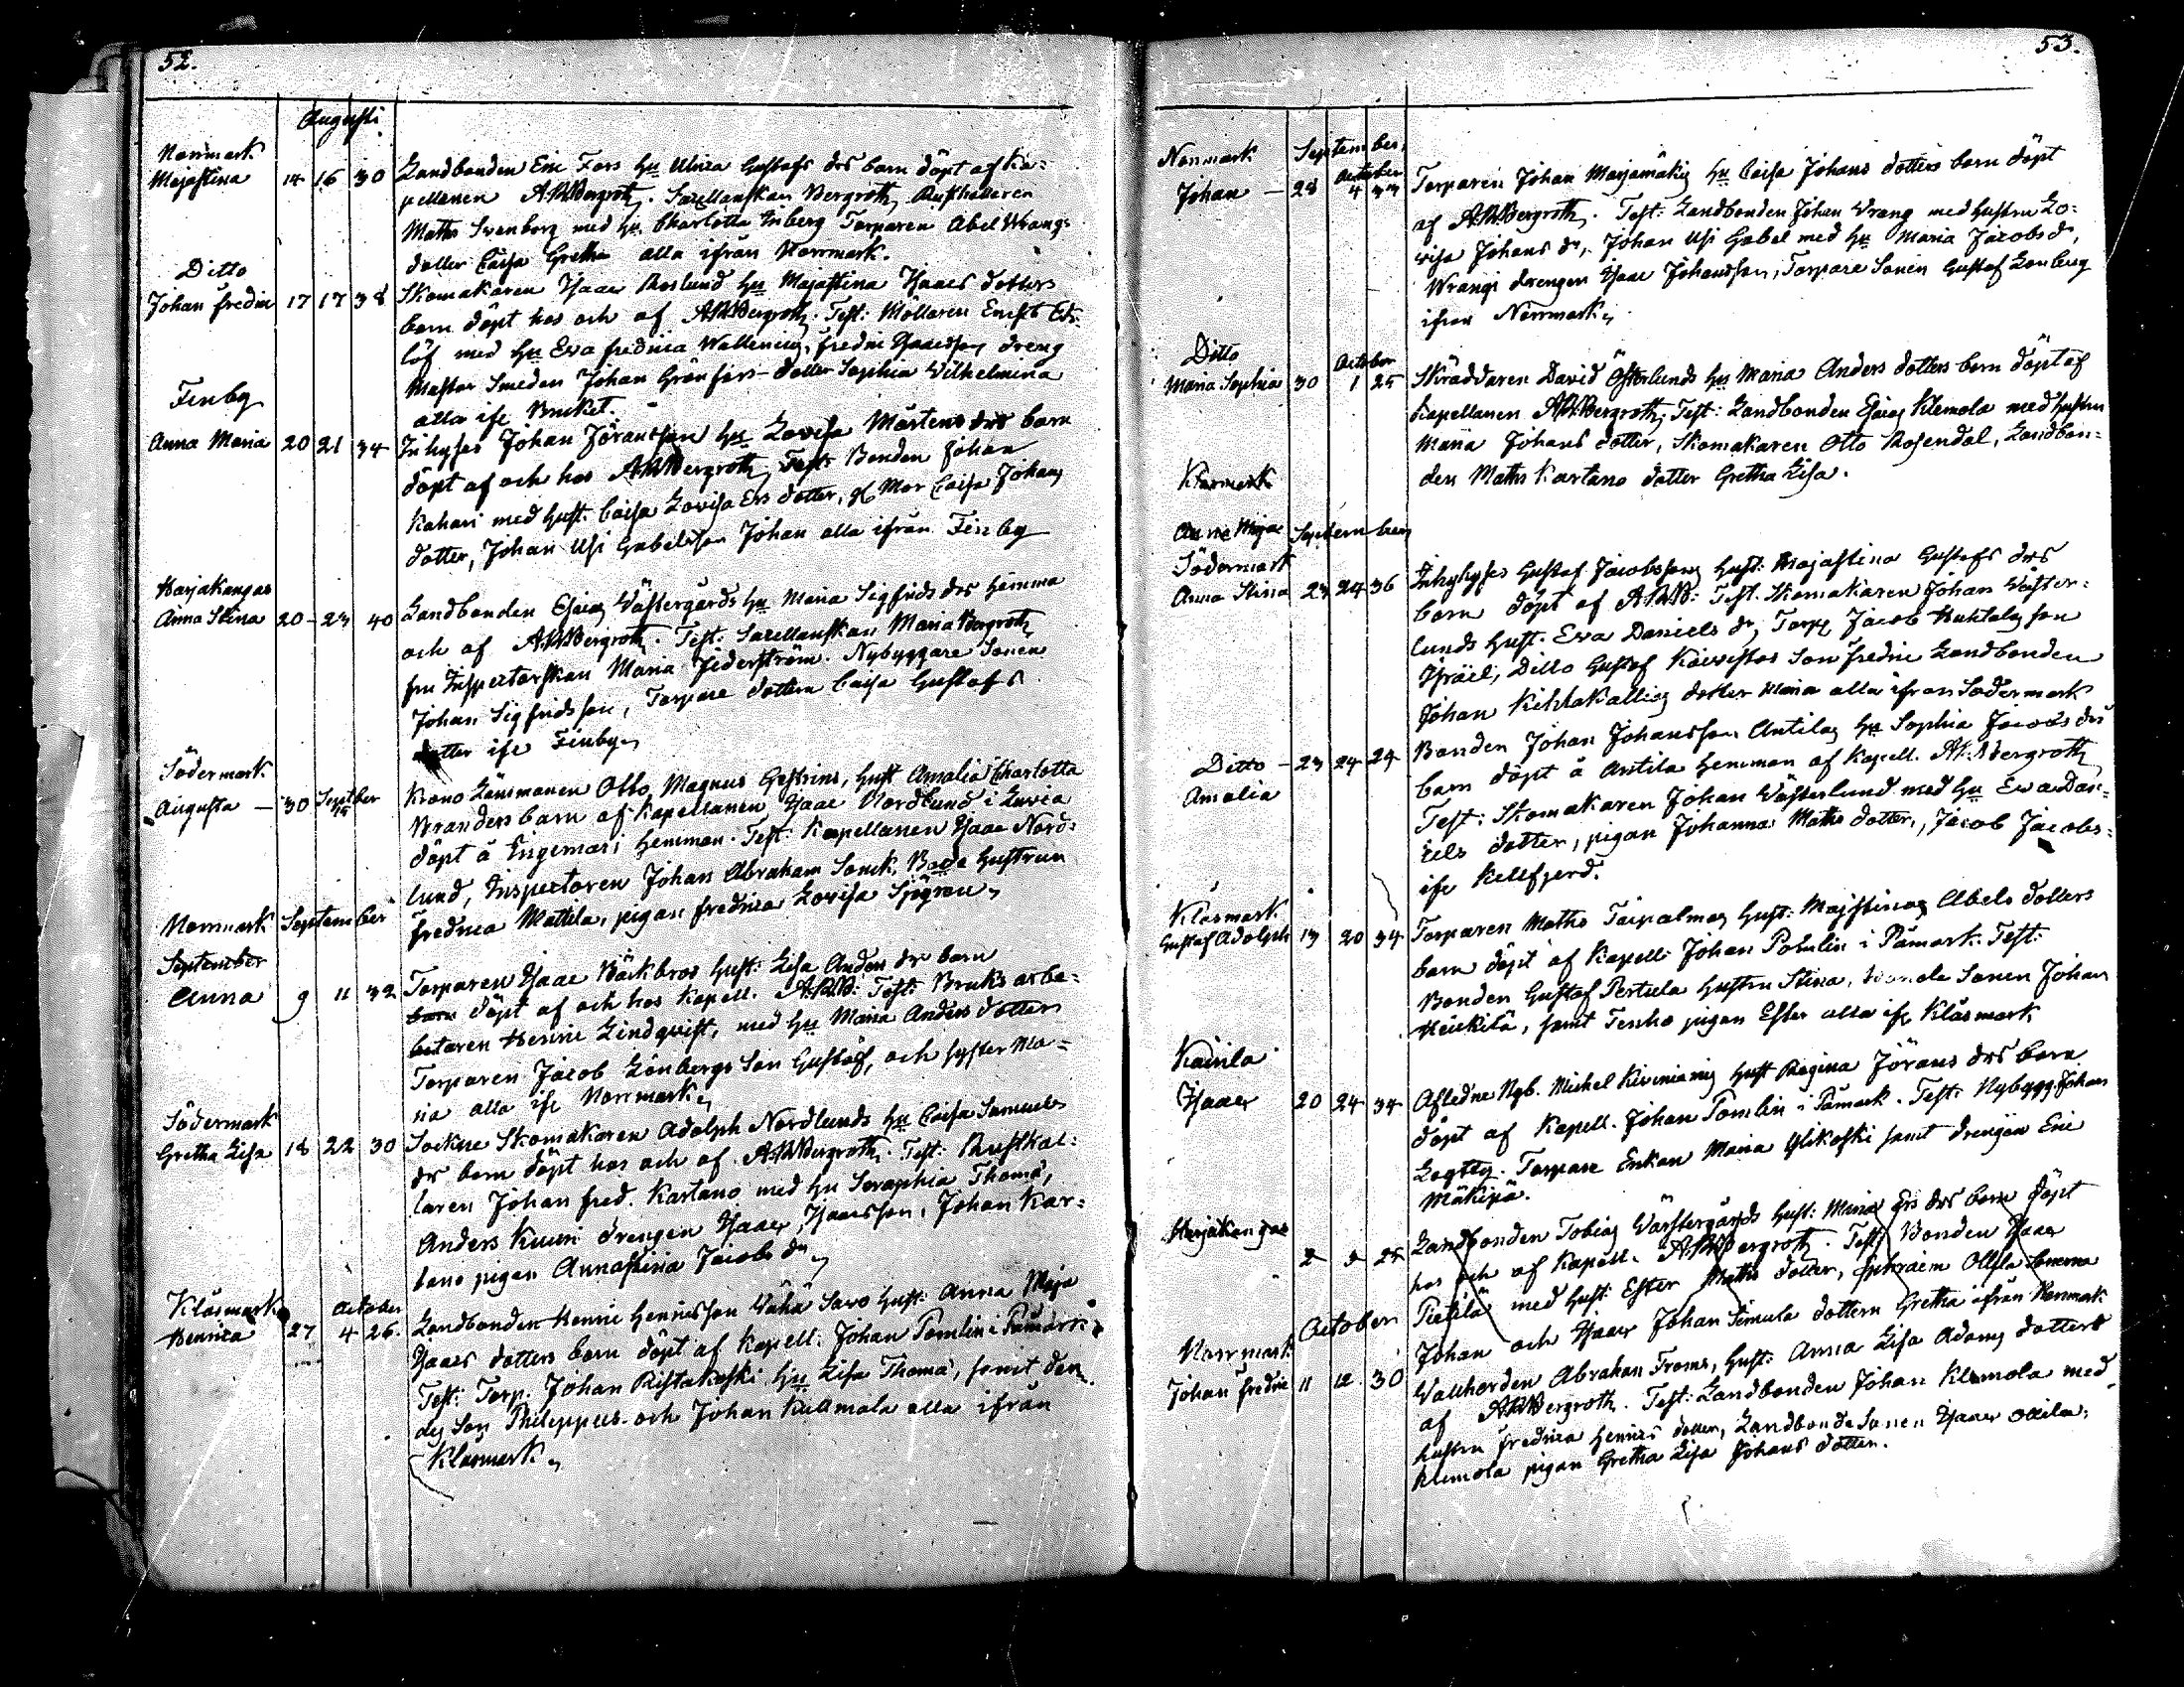 52.
Augusti
Norrmark
Majastina 14 16 30 Landbonden Eric Fors Hu Ulrica Gustafs drs barn döpt af Ka=
pellanen A.W.Bergroth. Sacellanskan Bergroth, Rusthållaren
Maths Svenborg med Hu Charlotta Enberg Torparen Abel Wrangs
dotter Caisa Gretha alla ifrån Norrmark.
Ditto
Johan Fredric 17 17 38 Skomakaren Isaac Roslund Hu Majastina Isaacs dotters
barn döpt hos och af A.W.Bergroth. Test: Möllaren Ek=
löf med Hu Eva Fredrica Fredric Isaacsson dreng
Mastar Smeden Johan Grönfors dotter Sophia Vilhelmina
alla ifr Bruket.
Finby
Anna Maria 20 21 34 Inhyses Johan Göransson Hu Lovisa Mårtens drs barn
döpt af och hos A.W.Bergroth, Test: Bonden Johan
Kahari med Hust. Caisa Lovisa Ers dotter, Mor Caisa Johans
dotter, Johan Usi Gabelsson Johan alla ifrån Finby
Harjakangas
Anna Stina 20 23 40 Landbonden Esaias Västergårds Hu Maria Sigfrids drs hemma
och af A.W.Bergroth. Test: Sacellanskan Maria Bergroth
fru Inspectorskan Maria Federström. Nybyggare Sonen
Johan Sigfridsson, Torpare dottern Caisa Gustafs
dotter ifr Finby
Södermark
Augusta 30 Septber Krono Länsmanen Otto Magnus Gestrins, Hust Amalia Charlotta
Branders barn af Kapellanen Isaac Nordlund i Luvia
döpt å Engemari Hemman. Test: Kapellanen Isaac Nord=
lund, Inspectoren Johan Abraham Sonck, Hustrun
Fredrica Mattila, pigan Fredrica Lovisa Sjögren
Norrmark September
September
Anna 9 11 32 Torparen Isaac Bäckbros Hust: Lisa Anders dr barn
barn döpt af och hos Kapell. A.W.B: Test: Bruks arbe=
betaren Henric Lindqvist, med Hu Maria Anders dotter
Torparen Jacob Lönbergs Son Gustaf, och syster Ma=
ria alla ifr Norrmark
Södermark
Gretha Lisa 18 22 30 Sockne Skomakaren Adolph Nordlunds Hu Caisa Samuels
dr barn döpt hos och af A.W.Bergroth. Test: Rusthål=
laren Johan Fred. Kartano med Hu Seraphia Thoma,
Anders Kuuri drengen Isaac Isaacsson, Johan Kar=
tano pigan Annastina Jacobs dr
Klåsmark October
Henrica 27 4 26. Landbonden Henric Henricsson Vähä Savo Hust: Anna Maja
Isaacs dotters barn döpt af Kapell: Johan Pomlin i Påmark
Test: Torp. Johan Ristakoski Hu Lisa Thoma, samt den
des Son Philippus och Johan Kullmala alla ifrån
Klåsmark
53.
Norrmark September,
October
Johan 28 4 33 Torparen Johan Marjamäkis Hu Caisa Johans dotters barn döpt
af A.W.Bergroth. Test: Landbonden Johan Wrang med Hustru Lo=
visa Johans dr, Johan Usi Gabel med Hu Maria Jacobs dr,
Wrangs drengen Isaac Johansson, Torpare Sonen Gustaf Lönberg
ifrån Norrmark
Ditto October
Maria Sophia 30 1 25 Skräddaren David Österlunds Hu Maria Anders dotters barn döpt af
Kapellanen A.W.Bergroth, Test: Landbonden Esaias Klemola med Hustru
Maria Johans dotter, Skomakaren Otto Rosendal, Landbon=
den Maths Kartano dotter Gretha Lisa.
Klåsmark
Anna Maja September
Södermark
Anna Stina 23 24 36 Inhyses Gustaf Jacobssons Hust: Majastina Gustafs drs
barn döpt af A.W.B: Test. Skomakaren Johan Väster=
lunds Hust. Eva Daniels dr, Torp Jacob Huhtala son
Israel, Ditto Gustaf Koivistos Son Fredric Landbonden
Johan Kihlakallios dotter Maria alla ifrån Södermark
Ditto 23 24 24 Bonden Johan Johansson Antilas Hu Sophia Jacobs drs
Amalia barn döpt å Antila Hemman af Kapell. A.W.Bergroth,
Test: Skomakaren Johan Västerlund med Hu Eva Dan=
iels dotter, pigan Johanna Maths dotter, Jacob Jacobs=
ifr Kellfjerd.
Klåsmark
Gustaf Adolph 13 20 34 Torparen Maths Taipalmas Hust: Majstinas Abels dotters
barn döpt af Kapell: Johan Pomlin i Påmark. Test:
Bonden Gustaf Pertula Hustru Stina, Sonen Johan
Heickilä, samt Tenho pigan Ester alla ifr Klåsmark
Kairila
Isaac 20 24 34 Afledne Nyb. Michel Kiviniemis Hust Regina Jörans drs barn
döpt af Kapell. Johan Pomlin i Påmark. Test: Nybygg. Johan
Torpare Enkan Maria Ylikoski samt drengen Eric
Mäkipä.
Harjakangas 2 3 25 Landbonden Tobias Västergårds Hust: Maria Ers drs barn döpt
hos och af Kapell. A.W.Bergroth. Test: Bonden Isaac
Pietilä med Hust Ester Maths dotter, Ephraim Ollila Sonerna
October Johan och Isaac Johan Simula dottern Gretha ifrån Norrmark
Norrmark
Johan Fredric 11 12 30 Vallherden Abraham Froms, Hust: Anna Lisa Adams dotters
af A.W.Bergroth. Test: Landbonden Johan Klemola med
hustru Fredrica Henrics dotter, Landbonde Sonen Isaac Ollila
Klemola pigan Gretha Lisa Johans dotter.